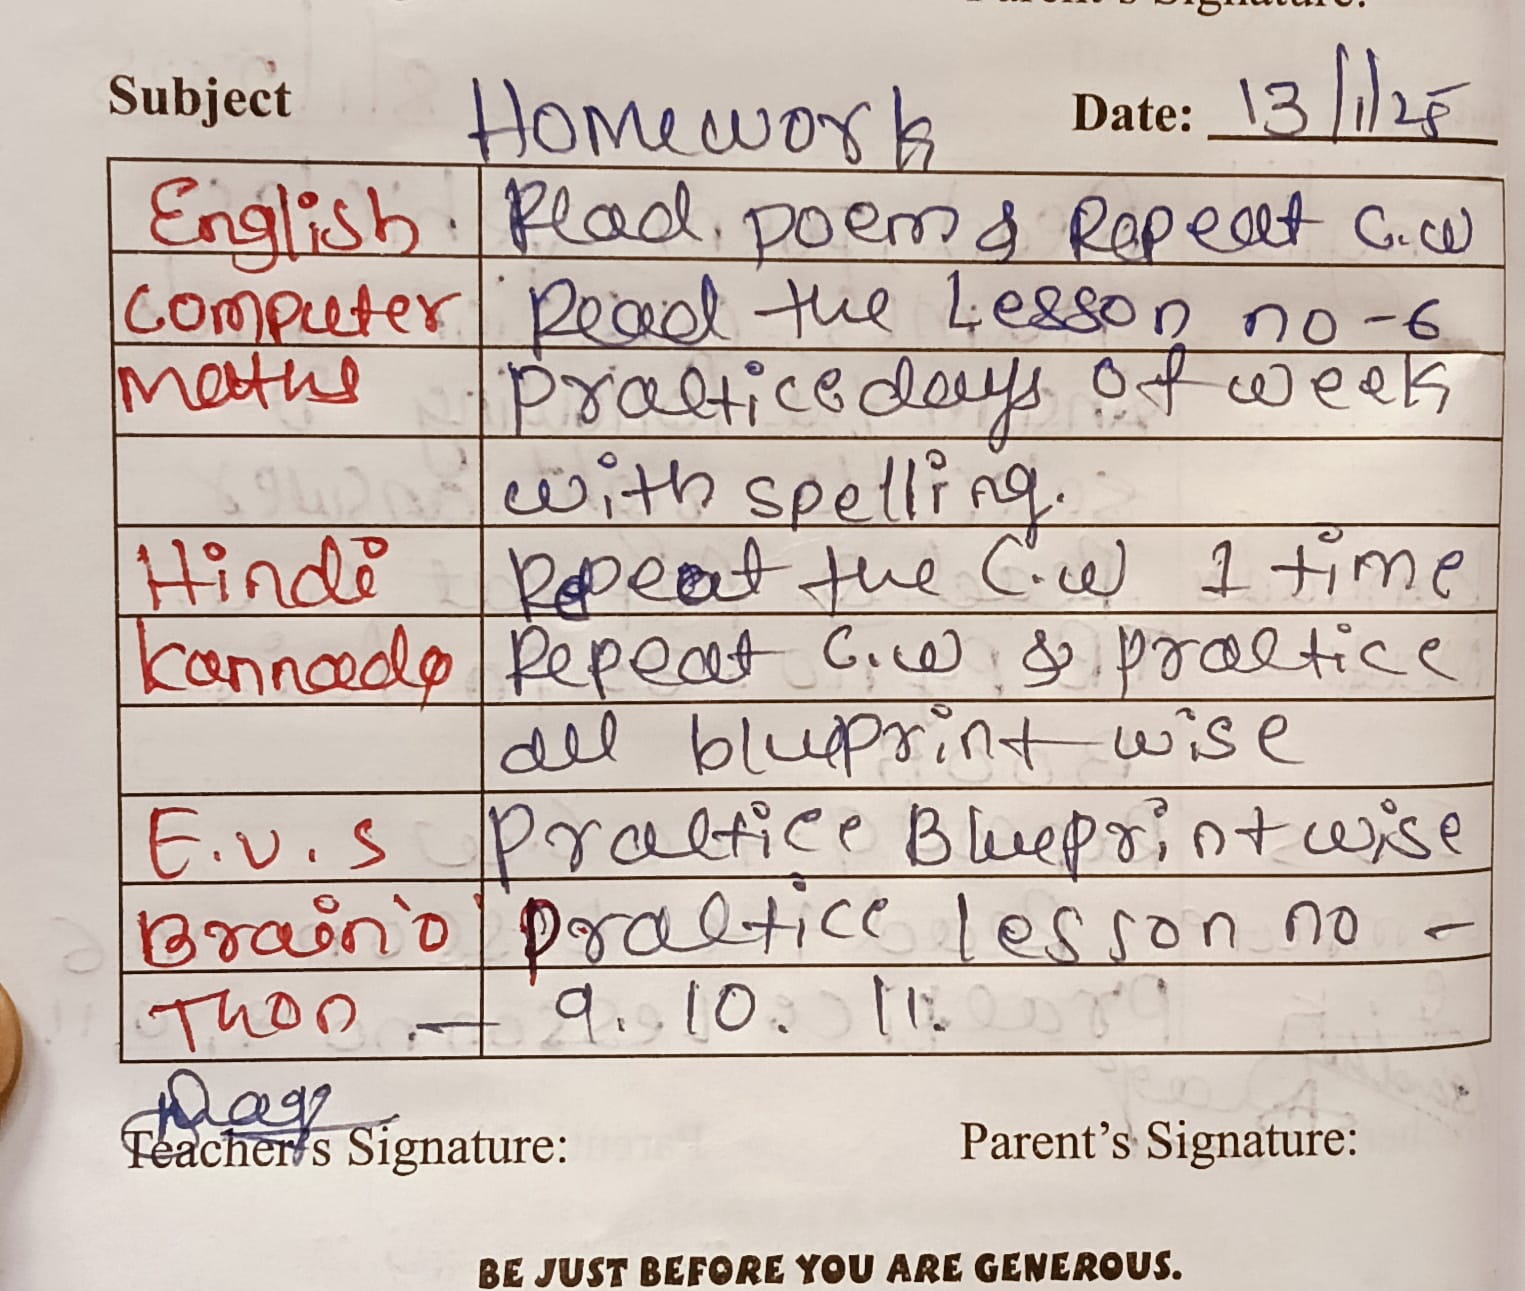 Subject Homework Date: 13/1/25
English. Read poem & Repeat C.W
Computer Read the Lesson no-6
Maths practice days of week
with spelling.
Hindi Repeat the C.W 1 time
Kannada Repeat C.W & practice
all blueprint wise
E.V.S Practice Blueprint wise
Brain'o' Practice lesson no -
Thon — 9. 10. 11.
Teacher's Signature: Parent's Signature:
BE JUST BEFORE YOU ARE GENEROUS.